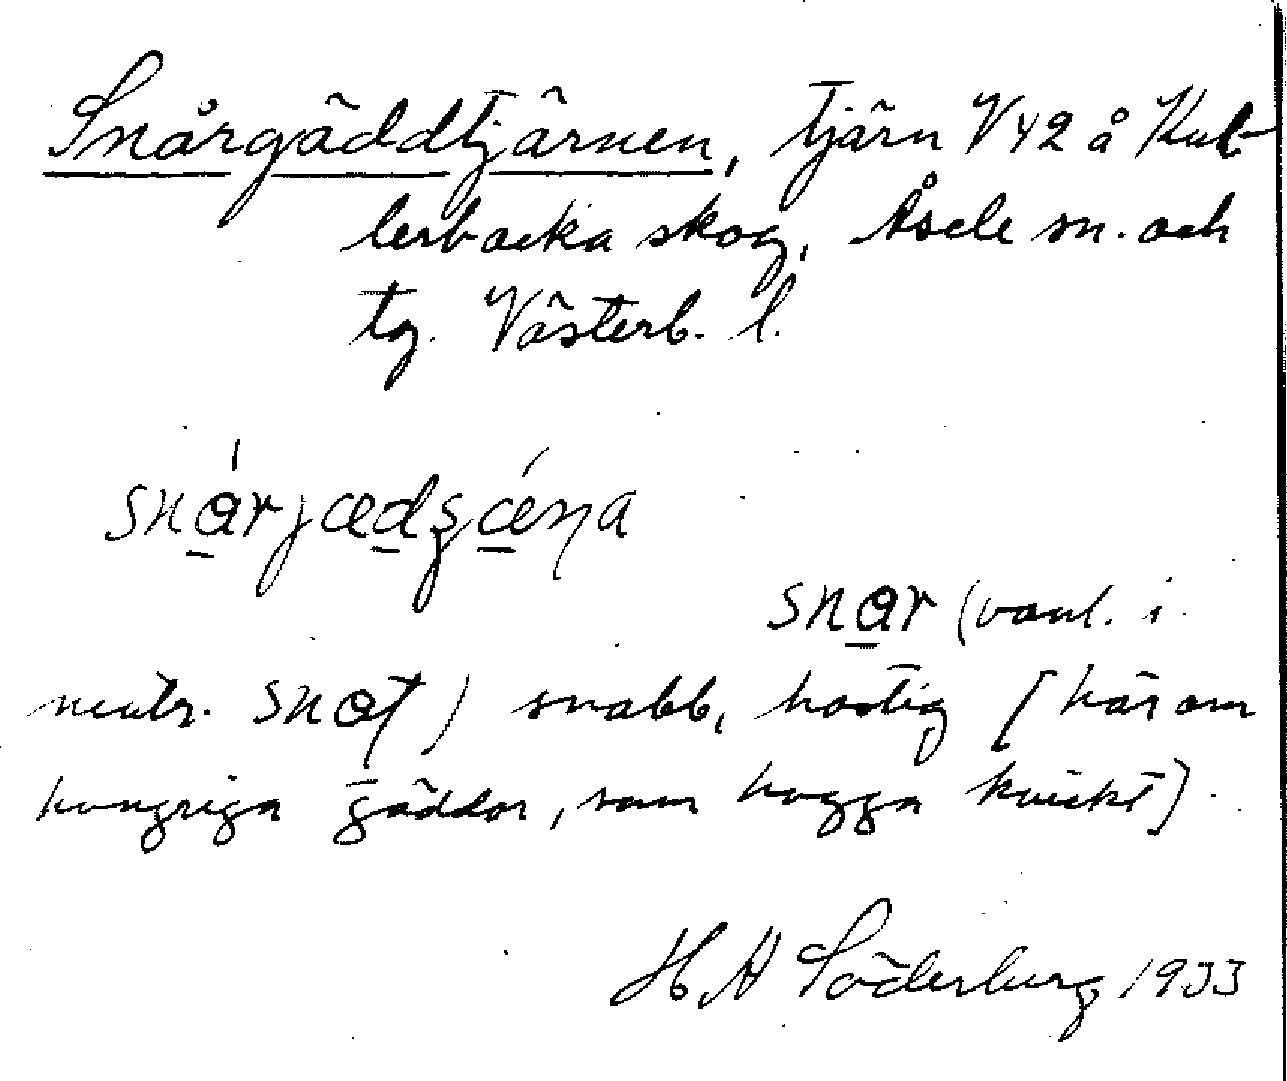 Snårgäddtjärnen, tjärn V42 å Kul-
lerbacka skog, Åsele sn. och
tg. Västerb. l.
snárjædʂǽɳa
snar (vanl. i
neutr. snaʈ) snabb, hastig [här om
hungriga gäddor, som hugga kvickt].
H A Söderberg 1933